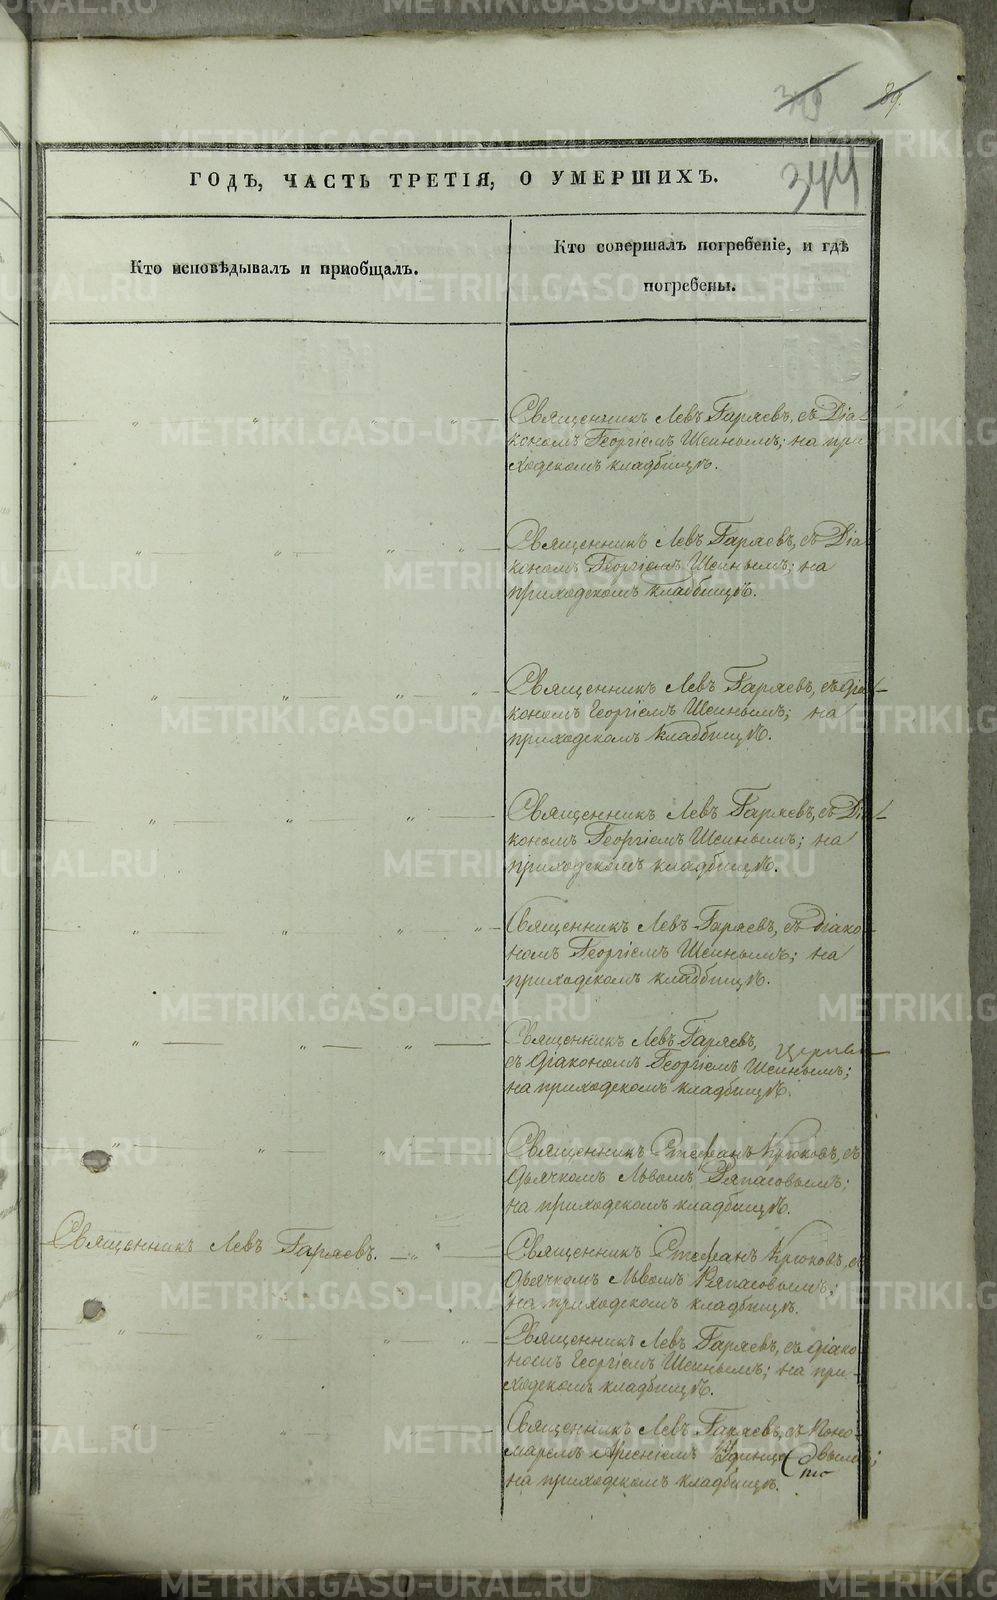 89.
344
ГОДЪ, ЧАСТЬ ТРЕТІЯ, О УМЕРШИХЪ.
Кто исповѣдывалъ и пріобщалъ.
Кто совершалъ погребеніе, и гдѣ
погребены.
Священникъ Левъ Гаряевъ, съ Діа-
кономъ Георгіемъ Шеинымъ; на при
ходскомъ кладбищѣ.
Священникъ Левъ Гаряевъ, съ Діа
кономъ Георгіемъ Шеинымъ; на
приходскомъ кладбищѣ.
Священникъ Левъ Гаряевъ, съ діа-
кономъ Георгіемъ Шеинымъ; на
приходскомъ кладбищѣ.
Священникъ Левъ Гаряевъ, съ Діа-
кономъ Георгіемъ Шеинымъ; на
приходскомъ кладбищѣ.
Священникъ Левъ Гаряевъ, съ діако-
номъ Георгіемъ Шеинымъ; на
приходскомъ кладбищѣ.
Священникъ Левъ Гаряевъ,
съ діакономъ Георгіемъ Шеинымъ;
на приходскомъ кладбищѣ.
Священникъ Стефанъ Крюковъ, съ
дьячкомъ Львомъ
на приходскомъ кладбищѣ.
Священникъ Левъ Гаряевъ.
Священникъ Стефанъ Крюковъ, съ
дьячкомъ Львомъ
на приходскомъ кладбищѣ.
Священникъ Левъ Гаряевъ, съ діако-
номъ Георгіемъ Шеинымъ; на при-
ходскомъ кладбищѣ.
Священникъ Левъ Гаряевъ, съ Поно-
маремъ Арсеніемъ
на приходскомъ кладбищѣ.
METRIKI.GASO-URAL.RU